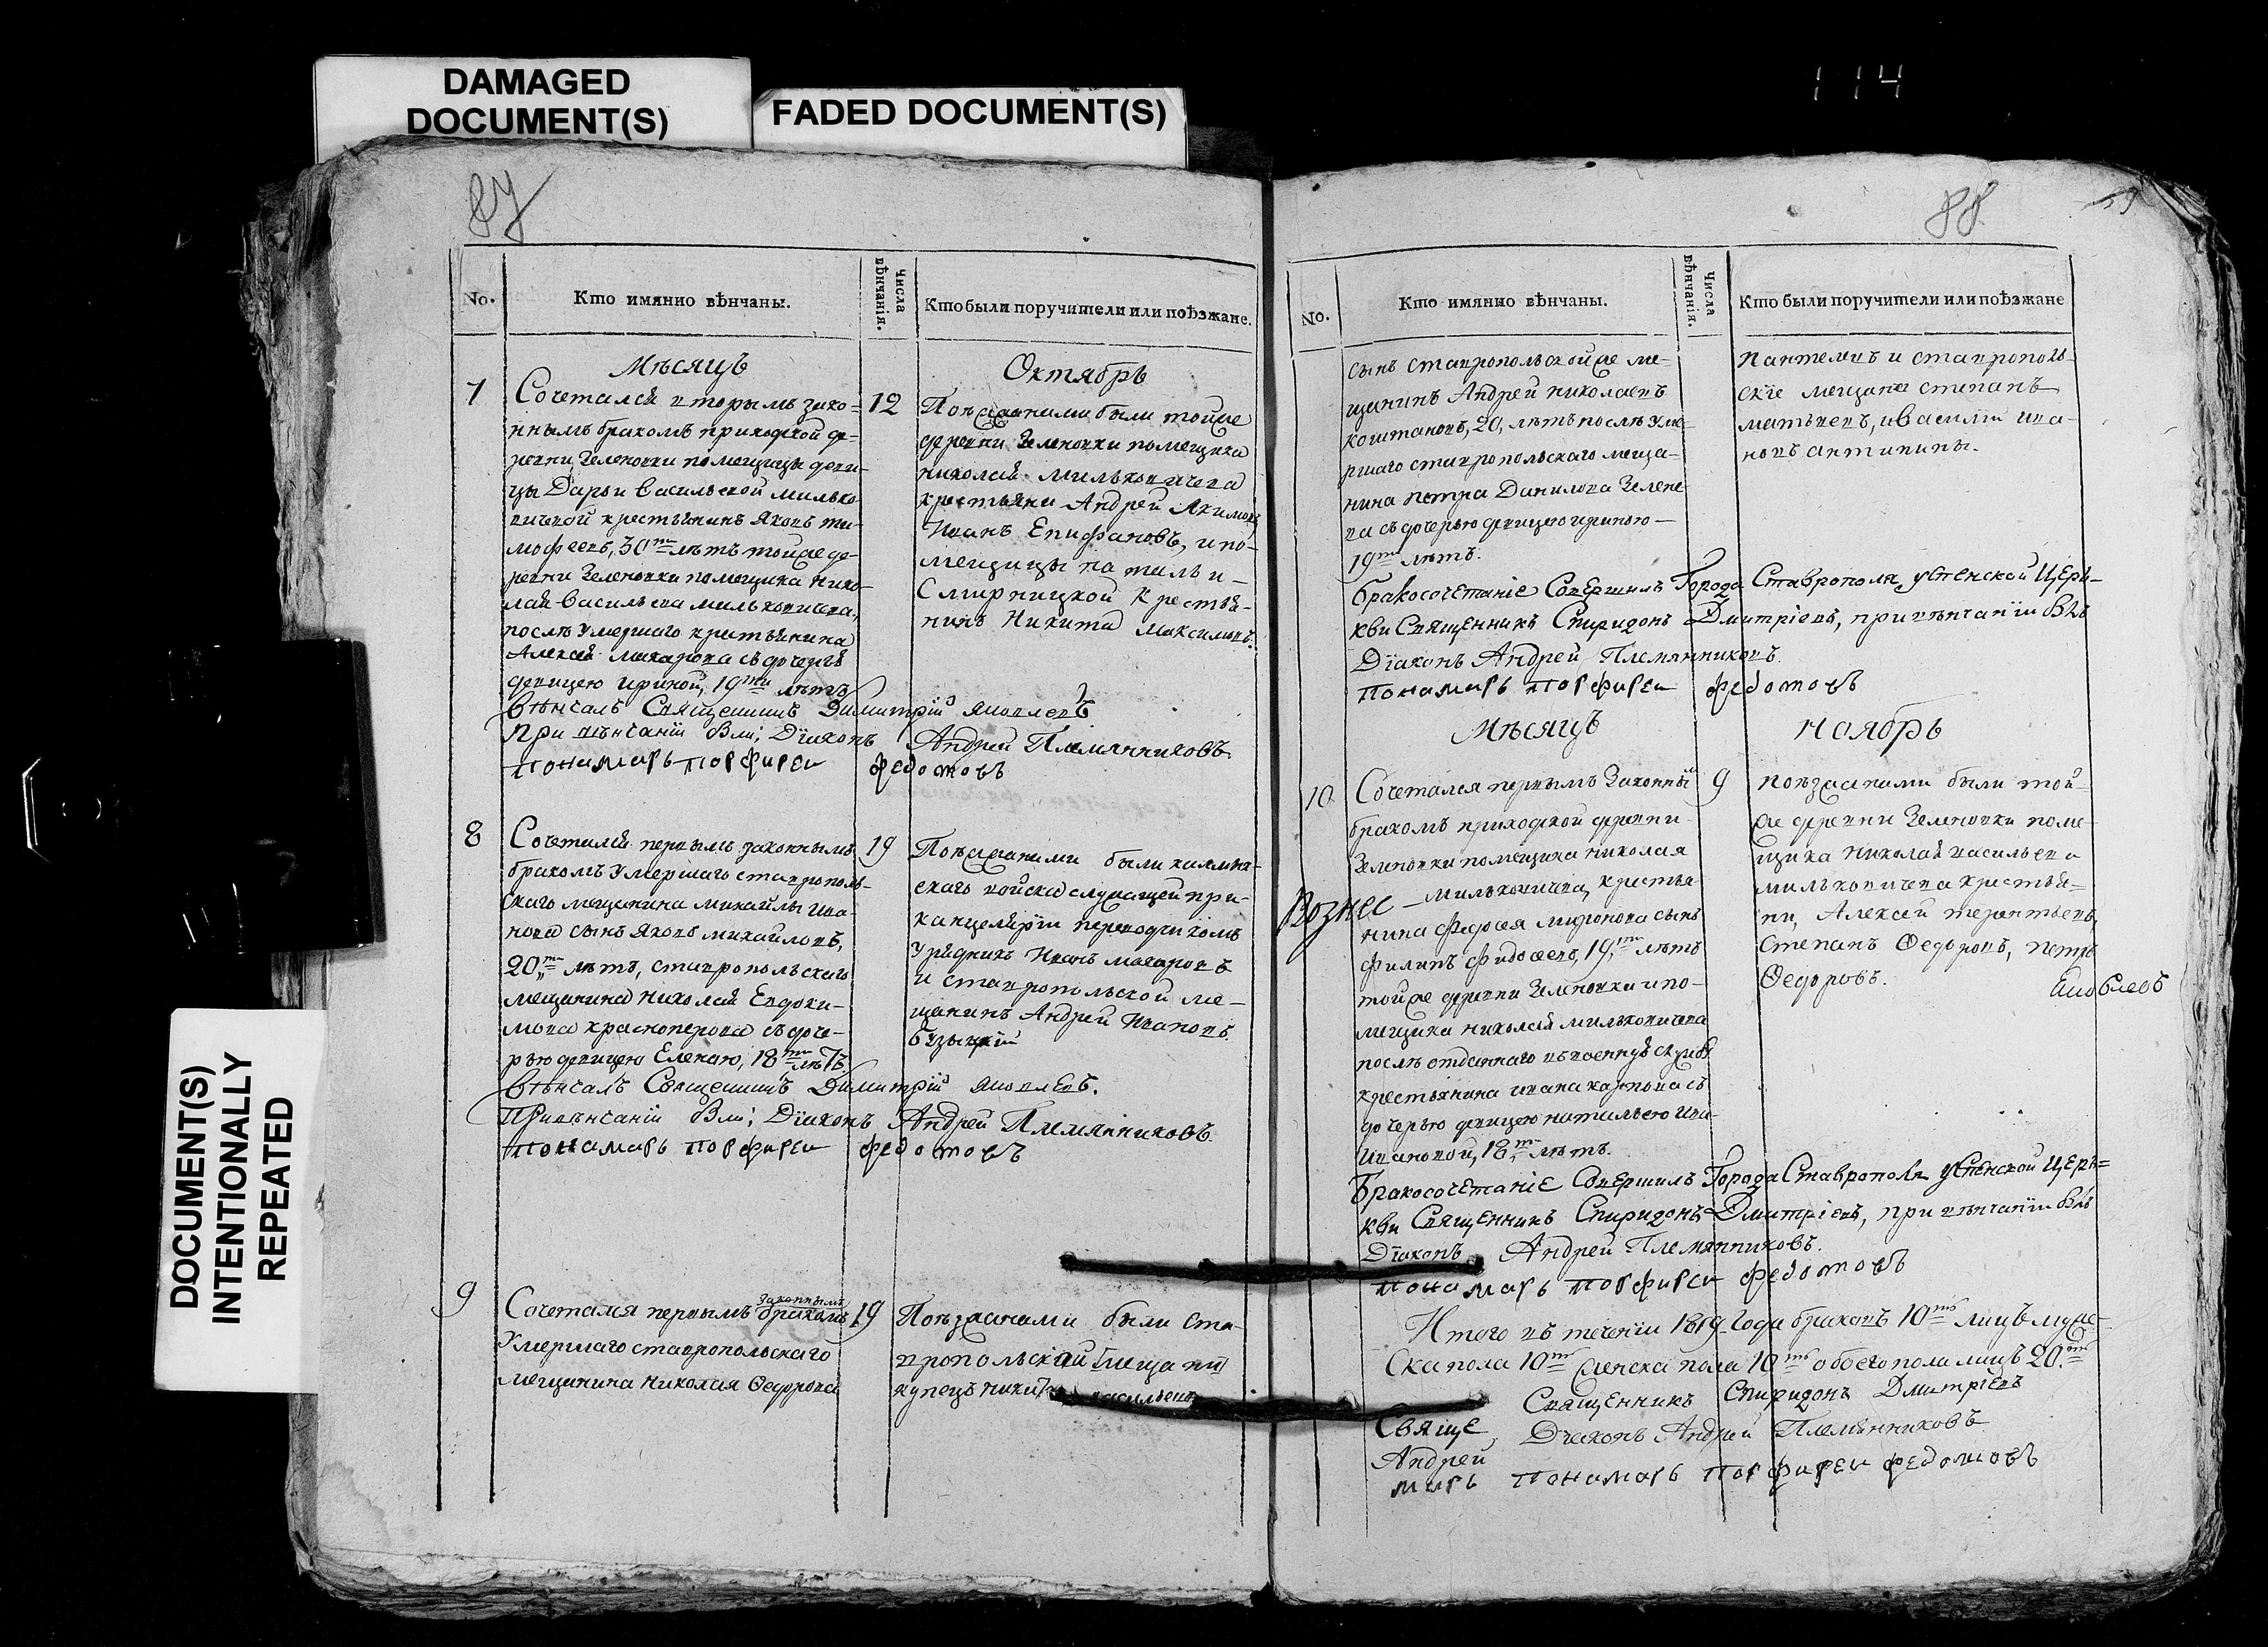 DAMAGED
DOCUMENT(S)
FADED DOCUMENT(S)
114
DOCUMENT(S)
INTENTIONALLY
REPEATED
87
No.
Кто имянно вѣнчаны.
Числа
вѣнчанія.
Кто были поручители или поѣзжане.
Мѣсяцъ
Октябрь
7
Сочетался вторымъ зако-
ннымъ бракомъ приходской де-
ревни Зеленовки помещицы деви-
цы Дарьи Васильевой Милько
вичевой крестьянинъ Яковъ ти-
мофеевъ, 30ти лѣтъ тойже де-
ревни Зеленовки помещика Нико-
лая Васильева Мильковичева,
послѣ Умершаго крстьянина
Алексея Макарова съ дочерью
девицею Ириной, 19ти лѣтъ
12
Поѣзжанами были тойже
деревни Зеленовки помещика
николая Мильковичева
крестьяни Андрей Якимовъ,
Иванъ Епифановъ, и по-
мещицы натальи
Смирницкой крестья-
нинъ Никита Максимовъ.
Вѣнчалъ Священникъ Димитрій Яковлевъ
При вѣнчаніи Были; Діяконъ Андрей Племянниковъ
понамарь порфиреи федотовъ
8
Сочетался первымъ законнымъ
бракомъ Умершаго ставрополь-
скаго мещанина михайлы Ива-
нова сынъ Яковъ михайловъ,
20ти лѣтъ, ставропольскаго
мещанина Николая Евдоки-
мова красноперова съ доче-
рью девицею Еленою, 18ти лѣтъ.
19
Поѣзжанами были калмы-
скаго войска служащей при
канцелярiи переводчикомъ
Урядникъ Иванъ макаровъ
и ставропольской ме-
щанинъ Андрей Ивановъ
Вѣнчалъ Священникъ Димитрій Яковлевъ.
При вѣнчаніи Были; Діяконъ Андрей Племянниковъ.
понамарь порфиреи федотовъ
9
Сочетался первымъ законнымъ бракомъ
Умершаго ставропольскаго
мещанина Николая Федорова
19
Поѣзжанами были Ста-
вропольскай
купецъ никита васильевъ
88
No.
Кто имянно вѣнчаны.
Числа
вѣнчанія.
Кто были поручители или поѣзжане
сынъ ставропольской же ме-
щанинъ Андрей николаевъ
коштановъ, 20, лѣтъ послѣ Уме-
ршаго ставропольскаго меща-
нина петра Данилова Зелене
ва съ дочерью девицею ириною
19ти лѣтъ.
пантелевъ и ставрополь-
скіе мещане степанъ
матвеевъ, и Василiи ива-
новъ антипинъ.
Бракосочетаніе Совершилъ Города Ставрополя, успенской Церь-
кви Священникъ Спиридонъ Дмитріевъ, при вѣнчаніи Был
Діаконъ Андрей Племянниковъ
понамарь порфиреи федотовъ
Мѣсяцъ
Ноябрь
10
Сочетался первымъ Законны
бракомъ приходской деревни
Зеленовки помещика николая
Мильковичева, крестья
нина Федосея миронова сынъ
филипъ федосеевъ, 19ти лѣтъ
тойже деревни Зеленовки и по-
мещика николая мильковичева
послѣ отданнаго въ военную службу
крестьянина ивана карпова съ
дочерью девицею натальею Ива
Ивановой, 18ти лѣтъ.
Вознес
9
поѣзжанами были той
же деревни Зеленовки поме-
щика Николая васильева
мильковичева крестья-
ни, Алексей терентьевъ,
Степанъ Федоровъ, петръ
Федоровъ.
Бракосочетаніе Совершилъ Города Ставрополя успенской Церь=
кви Священникъ Спиридонъ Дмитріевъ, при вѣнчаніи Был
Діаконъ Андрей Племянниковъ.
понамарь порфиреи федотовъ
Итого въ теченіи 1819 Года браковъ 10ть лицъ муже-
ска пола 10ть женска пола 10ть обоего пола лицъ 20ть
Священникъ Спиридонъ Дмитріевъ
Свяще
Діяконъ Андрей Племянниковъ
Андрей
марь понамарь порфиреи федотовъ